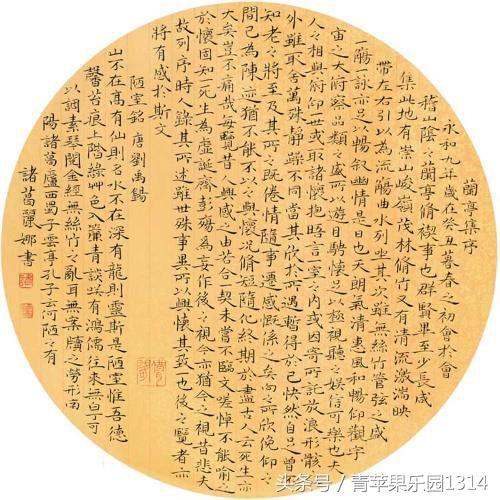 蘭亭集序
永和九年歲在癸丑暮春之初會於會
稽山陰之蘭亭脩稧事也群賢畢至少長咸
集此地有崇山峻嶺茂林脩竹又有清流激湍映
帶左右引以為流觴曲水列坐其次雖無絲竹管弦之盛
一觴一詠亦足以暢敘幽情是日也天朗氣清惠風和暢仰觀宇
宙之大俯察品類之盛所以遊目騁懷足以極視聽之娛信可樂也夫
人之相與俯仰一世或取諸懷抱悟言一室之內或因寄所託放浪形骸之
外雖取舍萬殊靜躁不同當其欣於所遇暫得於己快然自足曾不
知老之將至及其所之既倦情隨事遷感慨係之矣向之所欣俛仰之
間已為陳迹猶不能不以之興懷況脩短隨化終期於盡古人云死生亦
大矣豈不痛哉每覽昔人興感之由若合一契未嘗不臨文嗟悼不能喻之
於懷固知一死生為虛誕齊彭殤為妄作後之視今亦猶今之視昔悲夫
故列序時人錄其所述雖世殊事異所以興懷其致一也後之覽者亦
將有感於斯文
陋室銘 唐 劉禹錫
山不在高有仙則名水不在深有龍則靈斯是陋室惟吾德
馨苔痕上階綠艸色入簾青談笑有鴻儒往來無白丁可
以調素琴閱金經無絲竹之亂耳無案牘之勞形南
陽諸葛廬西蜀子雲亭孔子云何陋之有
諸葛麗娜書
头条号 / 青苹果乐园1314